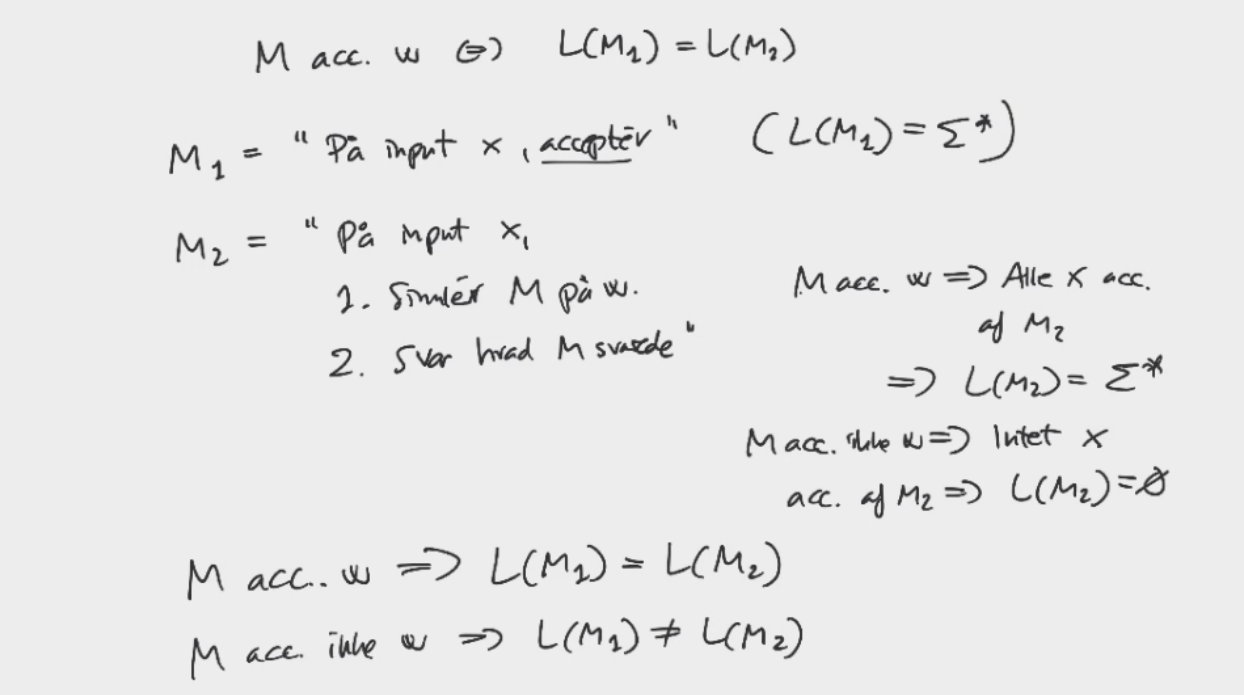 M acc. w ⇔ L(M₁) = L(M₂)
M₁ = " På input x, acceptér " (L(M₁) = Σ*)
M₂ = " På input x,
1. Simulér M på w.
2. Svar hvad M svarede "
M acc. w ⇒ Alle x acc.
af M₂
⇒ L(M₂) = Σ*
M acc. ikke w ⇒ Intet x
acc. af M₂ ⇒ L(M₂) = Ø
M acc.. w ⇒ L(M₁) = L(M₂)
M acc. ikke w ⇒ L(M₁) ≠ L(M₂)